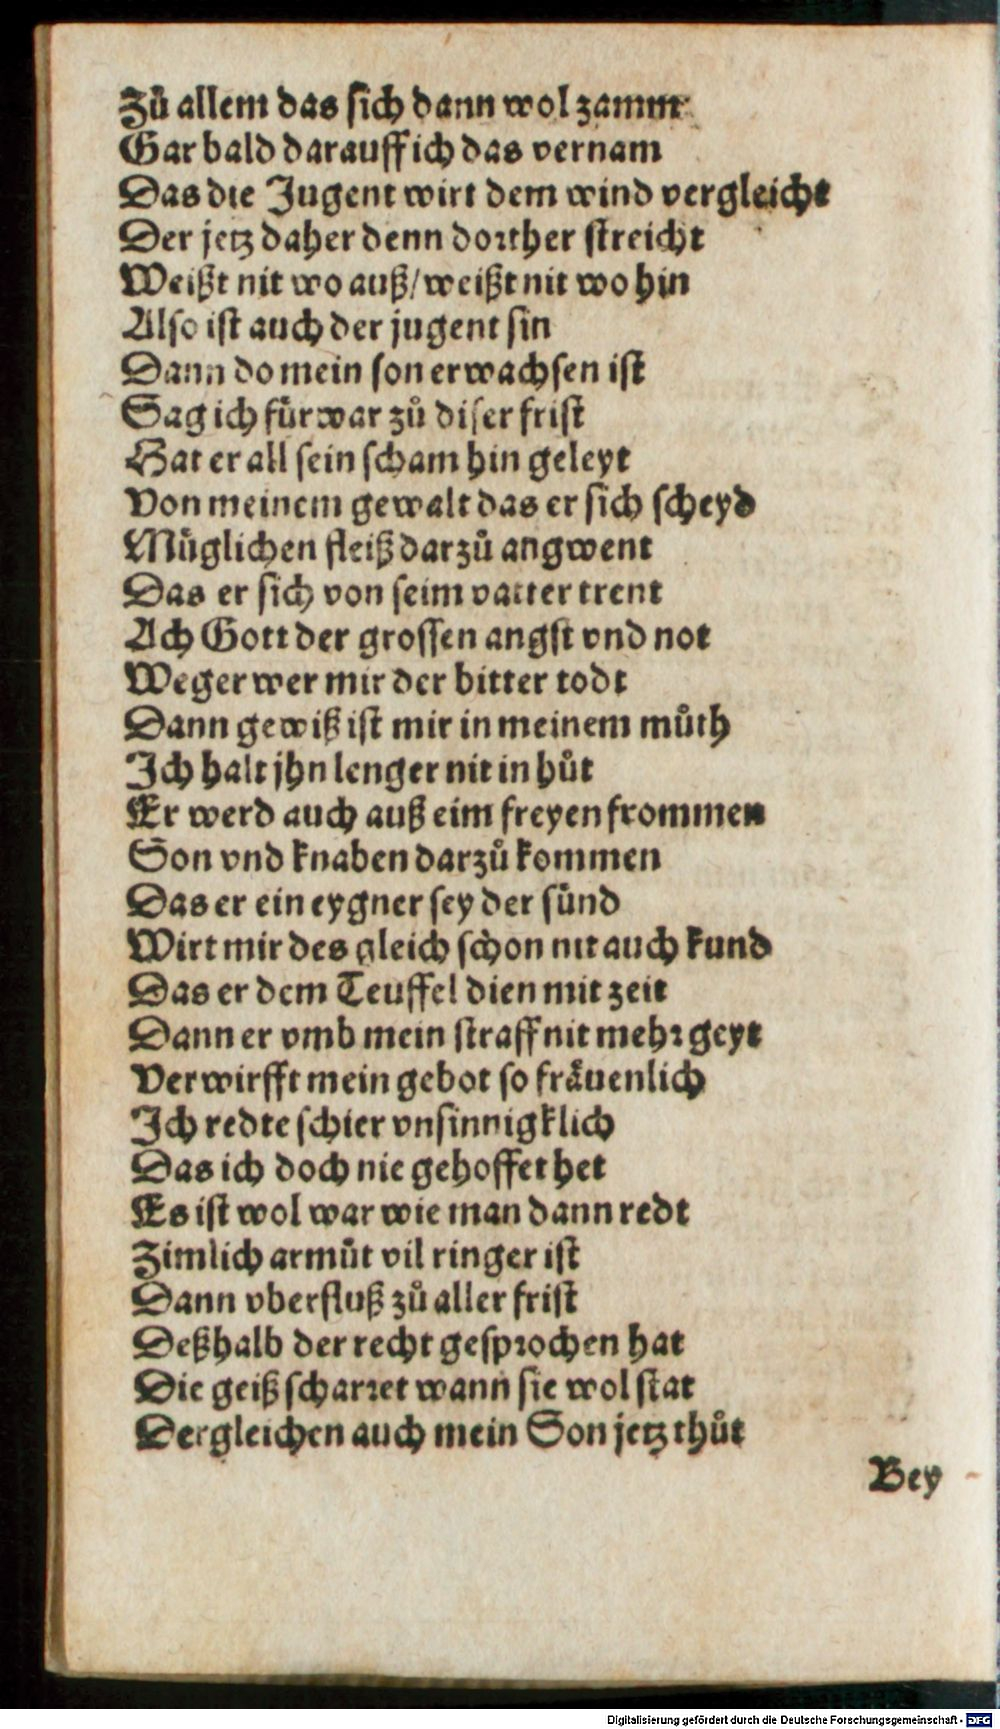 Zů allem das sich dann wol zamm
Gar bald darauff ich das vernam
Das die Jugent wirt dem wind vergleicht
Der jetz daher denn dorther streicht
Weißt nit wo auß/weißt nit wo hin
Also ist auch der jugent sin
Dann do mein son erwachsen ist
Sag ich fürwar zů diser frist
Hat er all sein scham hin geleyt
Von meinem gewalt das er sich scheyd
Müglichen fleiß darzů angwent
Das er sich von seim vatter trent
Ach Gott der grossen angst vnd not
Weger wer mir der bitter todt
Dann gewiß ist mir in meinem můth
Ich halt jhn lenger nit in hůt
Er werd auch auß eim freyen frommen
Son vnd knaben darzů kommen
Das er ein eygner sey der sünd
Wirt mir des gleich schon nit auch kund
Das er dem Teuffel dien mit zeit
Dann er vmb mein straff nit mehr geyt
Verwirfft mein gebot so fräuenlich
Ich redte schier vnsinnigklich
Das ich doch nie gehoffet het
Es ist wol war wie man dann redt
Zimlich armůt vil ringer ist
Dann vberfluß zů aller frist
Deßhalb der recht gesprochen hat
Die geiß scharret wann sie wol stat
Dergleichen auch mein Son jetz thůt
Bey
Digitalisierung gefördert durch die Deutsche Forschungsgemeinschaft - DFG